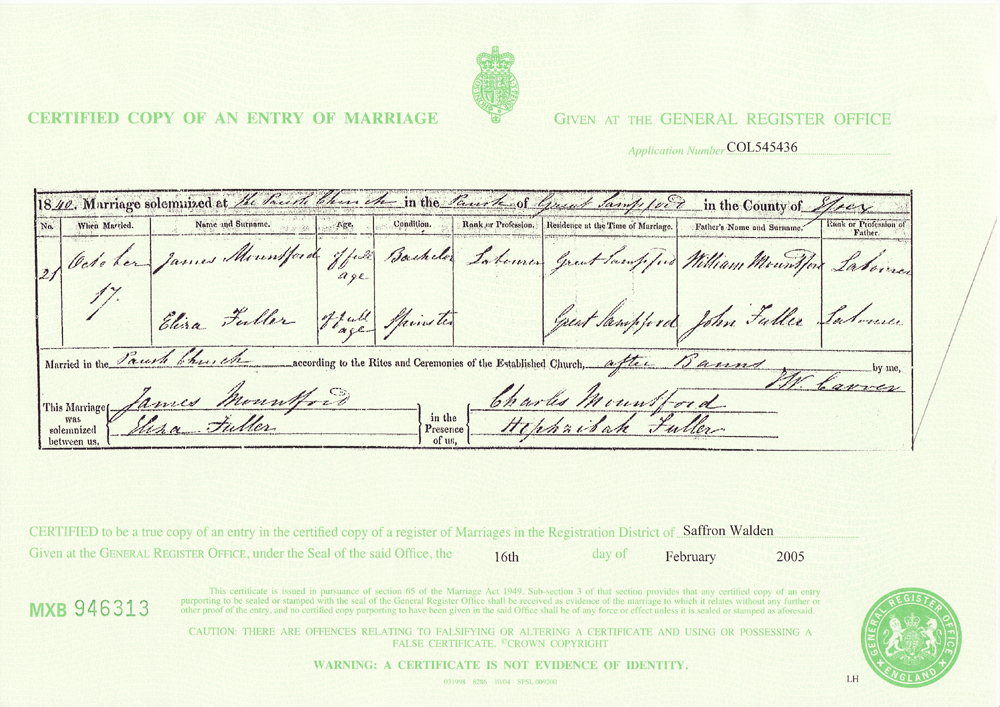 CERTIFIED COPY OF AN ENTRY OF MARRIAGE
GIVEN AT THE GENERAL REGISTER OFFICE
Application Number COL545436
1840. Marriage solemnized at the Parish Church in the Parish of Great Sampford in the County of Essex
No. When Married. Name and Surname. Age. Condition. Rank or Profession. Residence at the Time of Marriage. Father's Name and Surname. Rank or Profession of Father.
October 17. James Mountford of full age Bachelor Labourer Great Sampford William Mountford Labourer
Eliza Fuller of full age Spinster Great Sampford John Fuller Labourer
Married in the Parish Church according to the Rites and Ceremonies of the Established Church, after Banns by me,
Carver
This Marriage was solemnized between us, James Mountford Eliza Fuller in the Presence of us, Charles Mountford Hephzibah Fuller
CERTIFIED to be a true copy of an entry in the certified copy of a register of Marriages in the Registration District of Saffron Walden
Given at the GENERAL REGISTER OFFICE, under the Seal of the said Office, the 16th day of February 2005
This certificate is issued in pursuance of section 65 of the Marriage Act 1949. Sub-section 3 of that section provides that any certified copy of an entry
purporting to be sealed or stamped with the seal of the General Register Office shall be received as evidence of the marriage to which it relates without any further or
other proof of the entry, and no certified copy purporting to have been given in the said Office shall be of any force or effect unless it is sealed or stamped as aforesaid.
MXB 946313
CAUTION: THERE ARE OFFENCES RELATING TO FALSIFYING OR ALTERING A CERTIFICATE AND USING OR POSSESSING A
FALSE CERTIFICATE. ©CROWN COPYRIGHT
WARNING: A CERTIFICATE IS NOT EVIDENCE OF IDENTITY.
GENERAL REGISTER OFFICE ENGLAND
LH
031998 8286 10/04 SPSL 009200